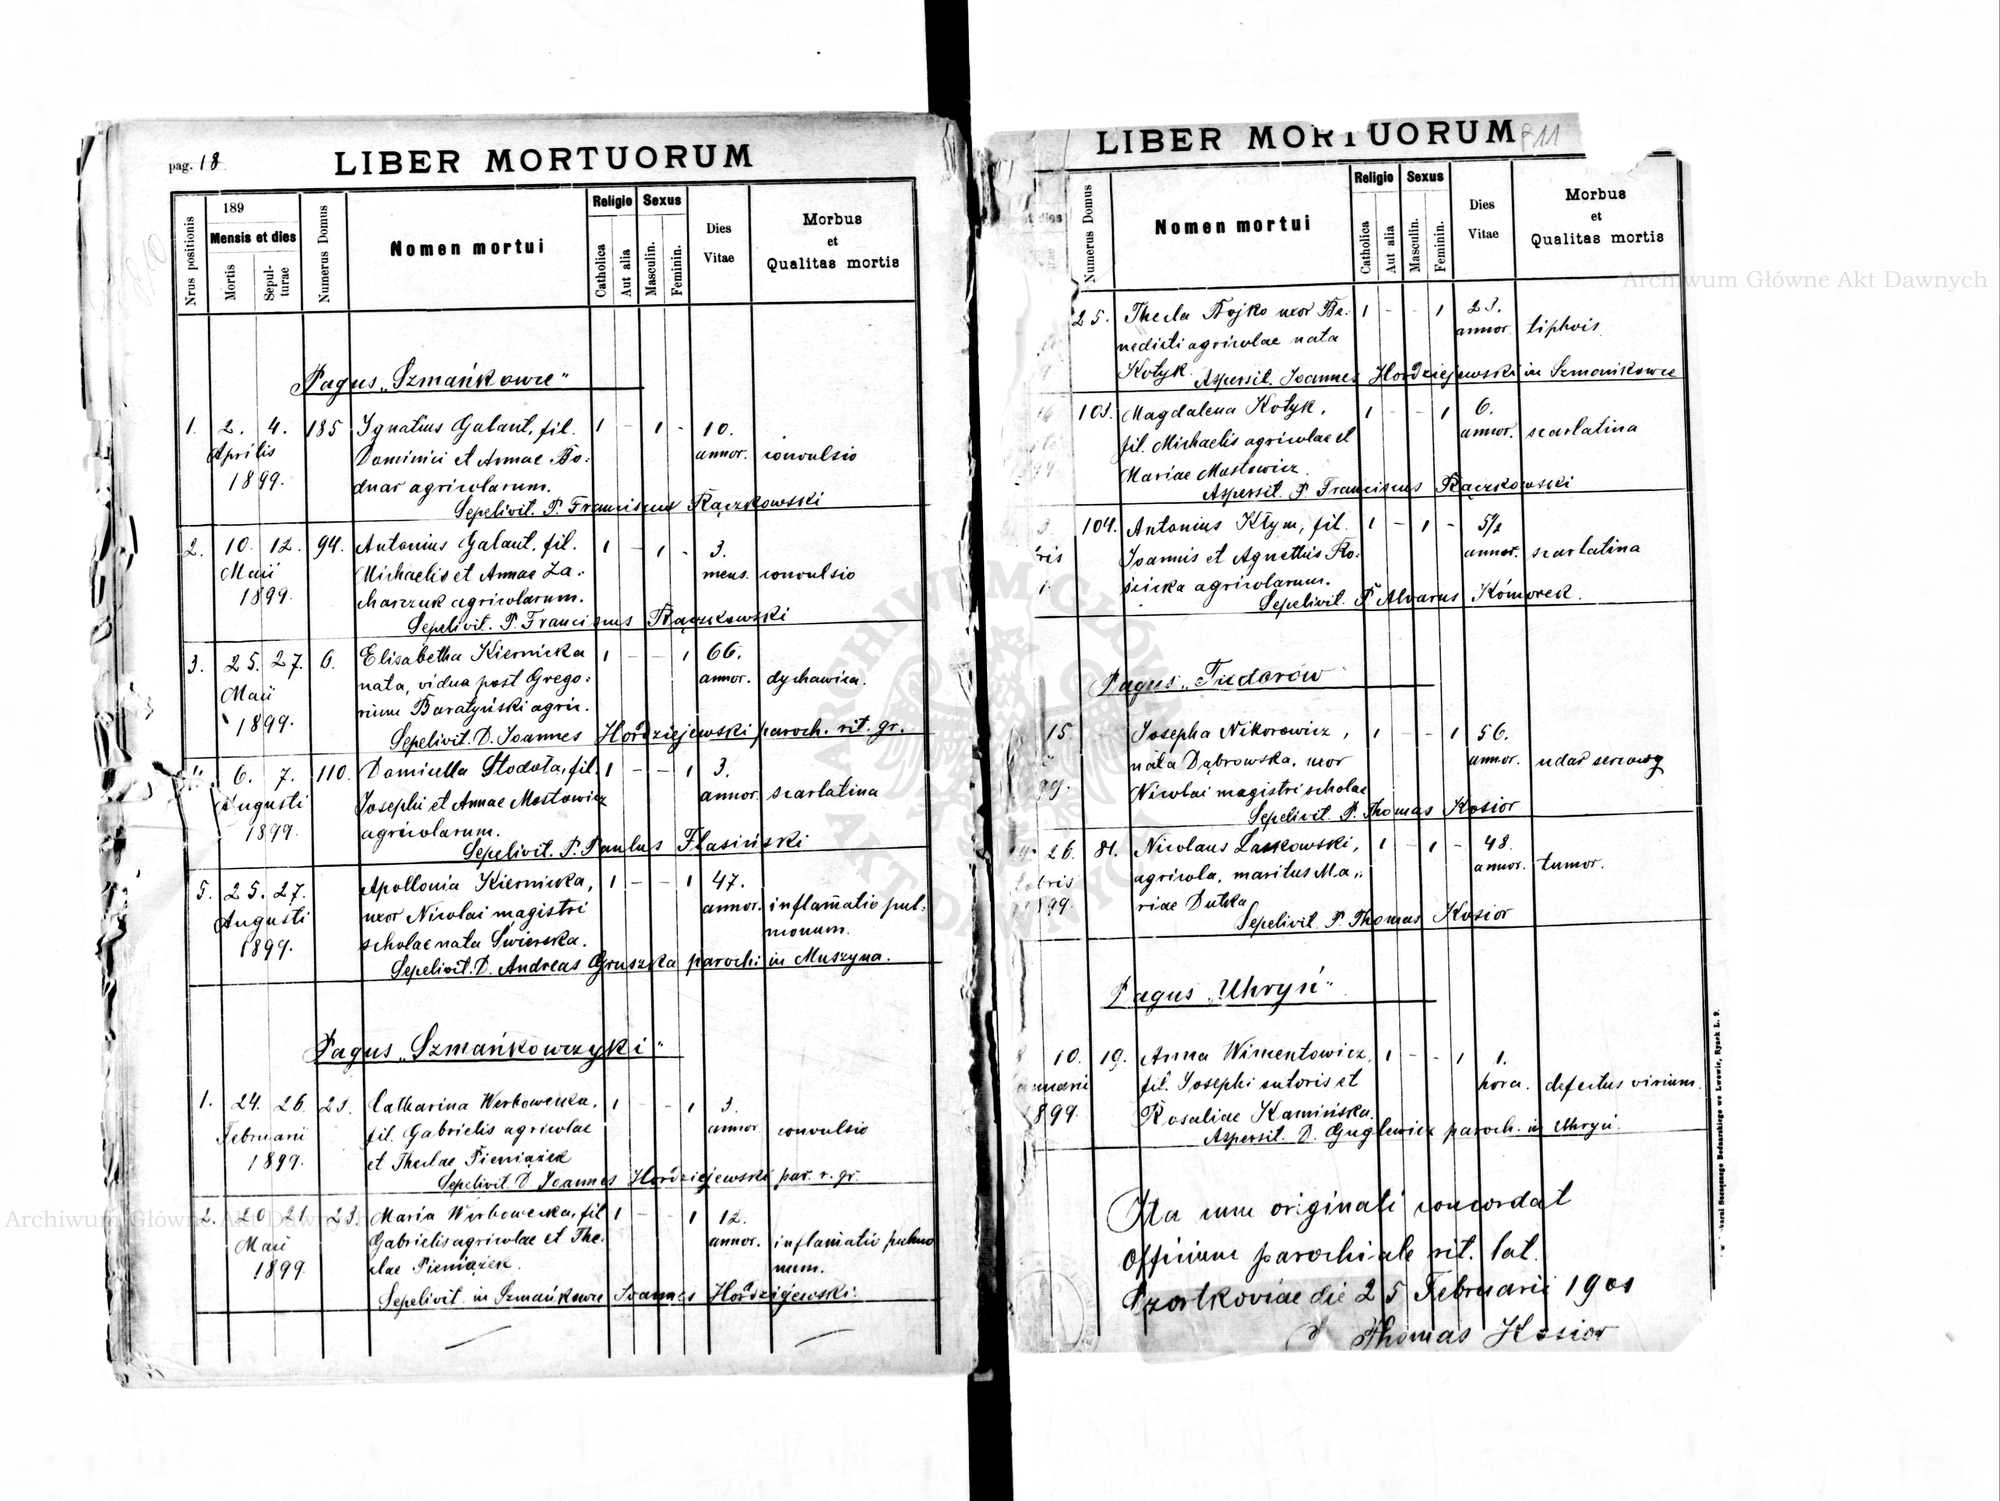 pag. 18
LIBER MORTUORUM
Nrus positionis
189
Mensis et dies
Mortis
Sepul-
turae
Numerus Domus
Nomen mortui
Religio
Catholica
Aut alia
Sexus
Masculin.
Feminin.
Dies
Vitae
Morbus
et
Qualitas mortis
Pagus „Szmańkowce"
1. 2. 4. 185 Ignatius Galant, fil. 1 - 1 - 10.
Aprilis Dominici et Annae Bo: annor. convulsio
1899. dnar agricolarum.
Sepelivit. P. Franciscus Rączkowski
2. 10. 12. 94. Antonius Galant, fil. 1 - 1 - 3.
Maii Michaelis et Annae Za: mens. convulsio
1899. charczuk agricolarum.
Sepelivit. P. Franciscus Rączkowski
3. 25. 27. 6. Elisabetha Kiernicka 1 - - 1 66.
Maii nata, vidua post Grego: annor. dychawica.
1899. rium Baratyński agric.
Sepelivit. D. Joannes Hordziejewski paroch. rit. gr.
4. 6. 7. 110. Domicella Stodoła, fil. 1 - - 1 3.
Augusti Josephi et Annae Mostowicz annor. scarlatina
1899. agricolarum.
Sepelivit. P. Paulus Flasiński
5. 25. 27. Apollonia Kiernicka, 1 - - 1 47.
Augusti uxor Nicolai magistri annor. inflamatio pul:
1899. scholae nata Świerska. monum.
Sepelivit. D. Andreas Gruszka parochi in Muszyna.
Pagus „Szmańkowczyki"
1. 24. 26. 23. Catharina Werbowecka, 1 - - 1 3.
Februarii fil. Gabrielis agricolae annor. convulsio
1899. et Theclae Pieniążek
Sepelivit. D. Joannes Hordziejewski par. r. gr.
2. 20. 21. 23. Maria Werbowecka, fil 1 - - 1 12.
Maii Gabrielis agricolae et The: annor. inflamatio pulmo
1899. clae Pieniążek. num.
Sepelivit. in Szmańkowce Joannes Hordziejewski.
LIBER MORTUORUM
P 11
et dies
Numerus Domus
Nomen mortui
Religio
Catholica
Aut alia
Sexus
Masculin.
Feminin.
Dies
Vitae
Morbus
et
Qualitas mortis
25. Thecla Bojko uxor Be: 1 - - 1 23.
nedicti agricolae nata annor. tiphois
Kotyk. Aspersit. Joannes Hordziejewski in Szmańkowce
103. Magdalena Kotyk, 1 - - 1 6.
fil. Michaelis agricolae et annor. scarlatina
Mariae Mostowicz.
Aspersit. P. Franciscus Rączkowski
104. Antonius Kłym, fil. 1 - 1 - 5½
Joannis et Agnethis Ro: annor. scarlatina
ścicka agricolarum.
Sepelivit. P. Alvarus Komorek.
Pagus „Tudorów"
15 Josepha Nikorowicz, 1 - - 1 56.
nata Dąbrowska, uxor annor. udar sercowy
Nicolai magistri scholae
Sepelivit. P. Thomas Kosior
26. 81. Nicolaus Laskowski, 1 - 1 - 48.
agricola, maritus Ma: annor. tumor.
1899. riae Dutka
Sepelivit. P. Thomas Kosior
Pagus „Uhryń"
10. 19. Anna Wimentowicz, 1 - - 1 1.
fil. Josephi sutoris et hora. defectus virium.
1899. Rosaliae Kamińska.
Aspersit. D. Guglewicz paroch. in Uhryń.
Ita cum originali concordat
Officium parochiale rit. lat.
Czortkoviae die 25 Februarii 1901
P Thomas Kosior
Archiwum Główne Akt Dawnych
Archiwum Główne Akt Dawnych
ARCHIWUM GŁÓWNE AKT DAWNYCH